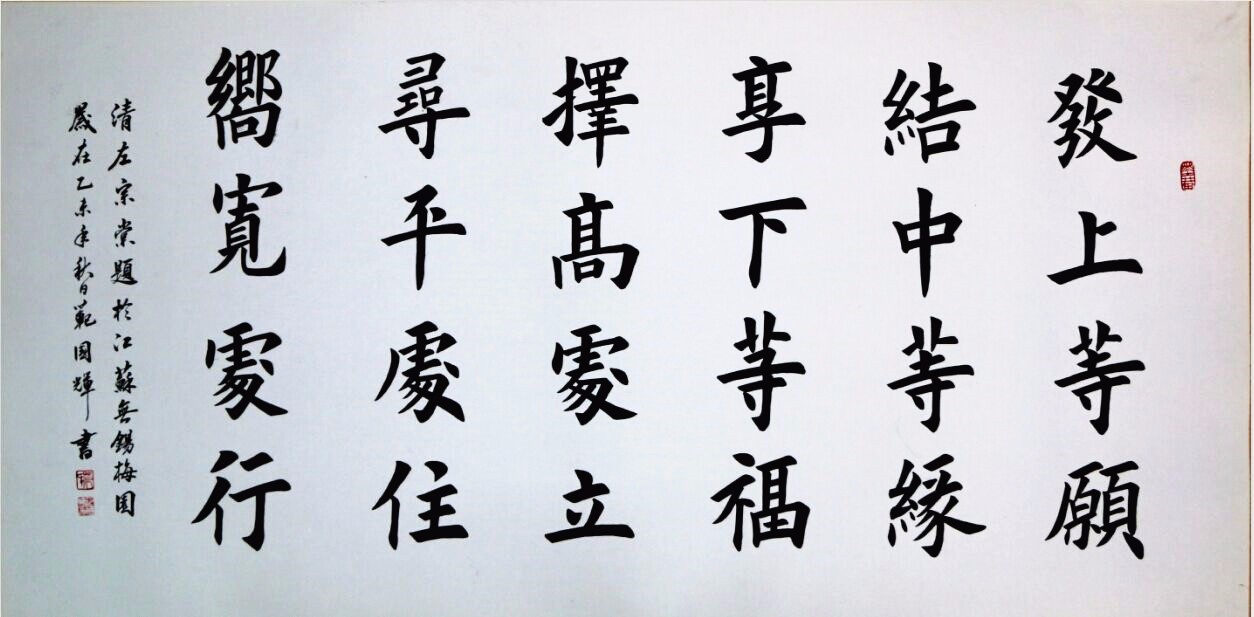 發上等願
結中等緣
享下等福
擇高處立
尋平處住
嚮寬處行
清左宗棠題於江蘇無錫梅園
歲在乙未年秋日範國輝書